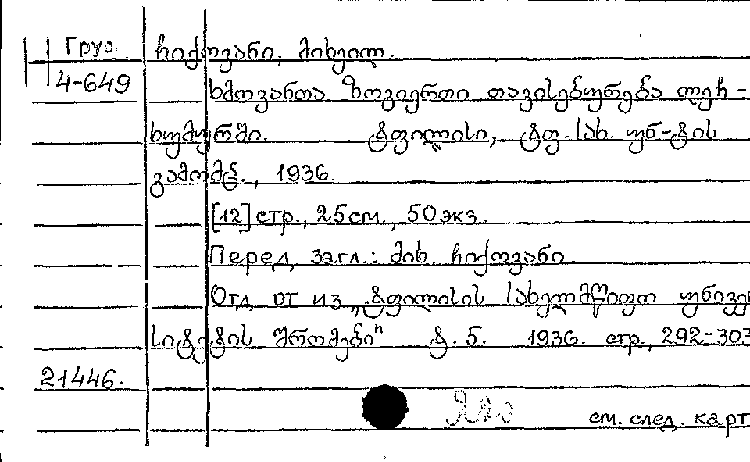 Груз. ჩიქოვანი, მიხეილ.
4-649 ხმოვანთა ზოგიერთი თავისებურება ლეჩ-
ხუმურში. ტფილისი, ტფ. სახ. უნ-ტის
გამომც., 1936.
[12] стр., 25см., 50 экз.
Перед. загл.: მიხ. ჩიქოვანი
Отд. от из „ტფილისის სახელმწიფო უნივე
სიტეტის შრომები" ტ. 5. 1936. стр., 292-303
21446.
см. след. карт